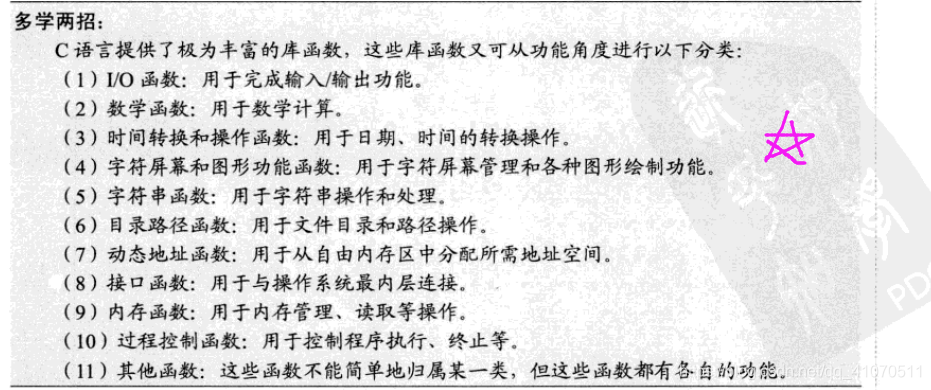 多学两招：
C 语言提供了极为丰富的库函数，这些库函数又可从功能角度进行以下分类：
（1）I/O 函数：用于完成输入/输出功能。
（2）数学函数：用于数学计算。
（3）时间转换和操作函数：用于日期、时间的转换操作。
（4）字符屏幕和图形功能函数：用于字符屏幕管理和各种图形绘制功能。
（5）字符串函数：用于字符串操作和处理。
（6）目录路径函数：用于文件目录和路径操作。
（7）动态地址函数：用于从自由内存区中分配所需地址空间。
（8）接口函数：用于与操作系统最内层连接。
（9）内存函数：用于内存管理、读取等操作。
（10）过程控制函数：用于控制程序执行、终止等。
（11）其他函数：这些函数不能简单地归属某一类，但这些函数都有各自的功能。
PD